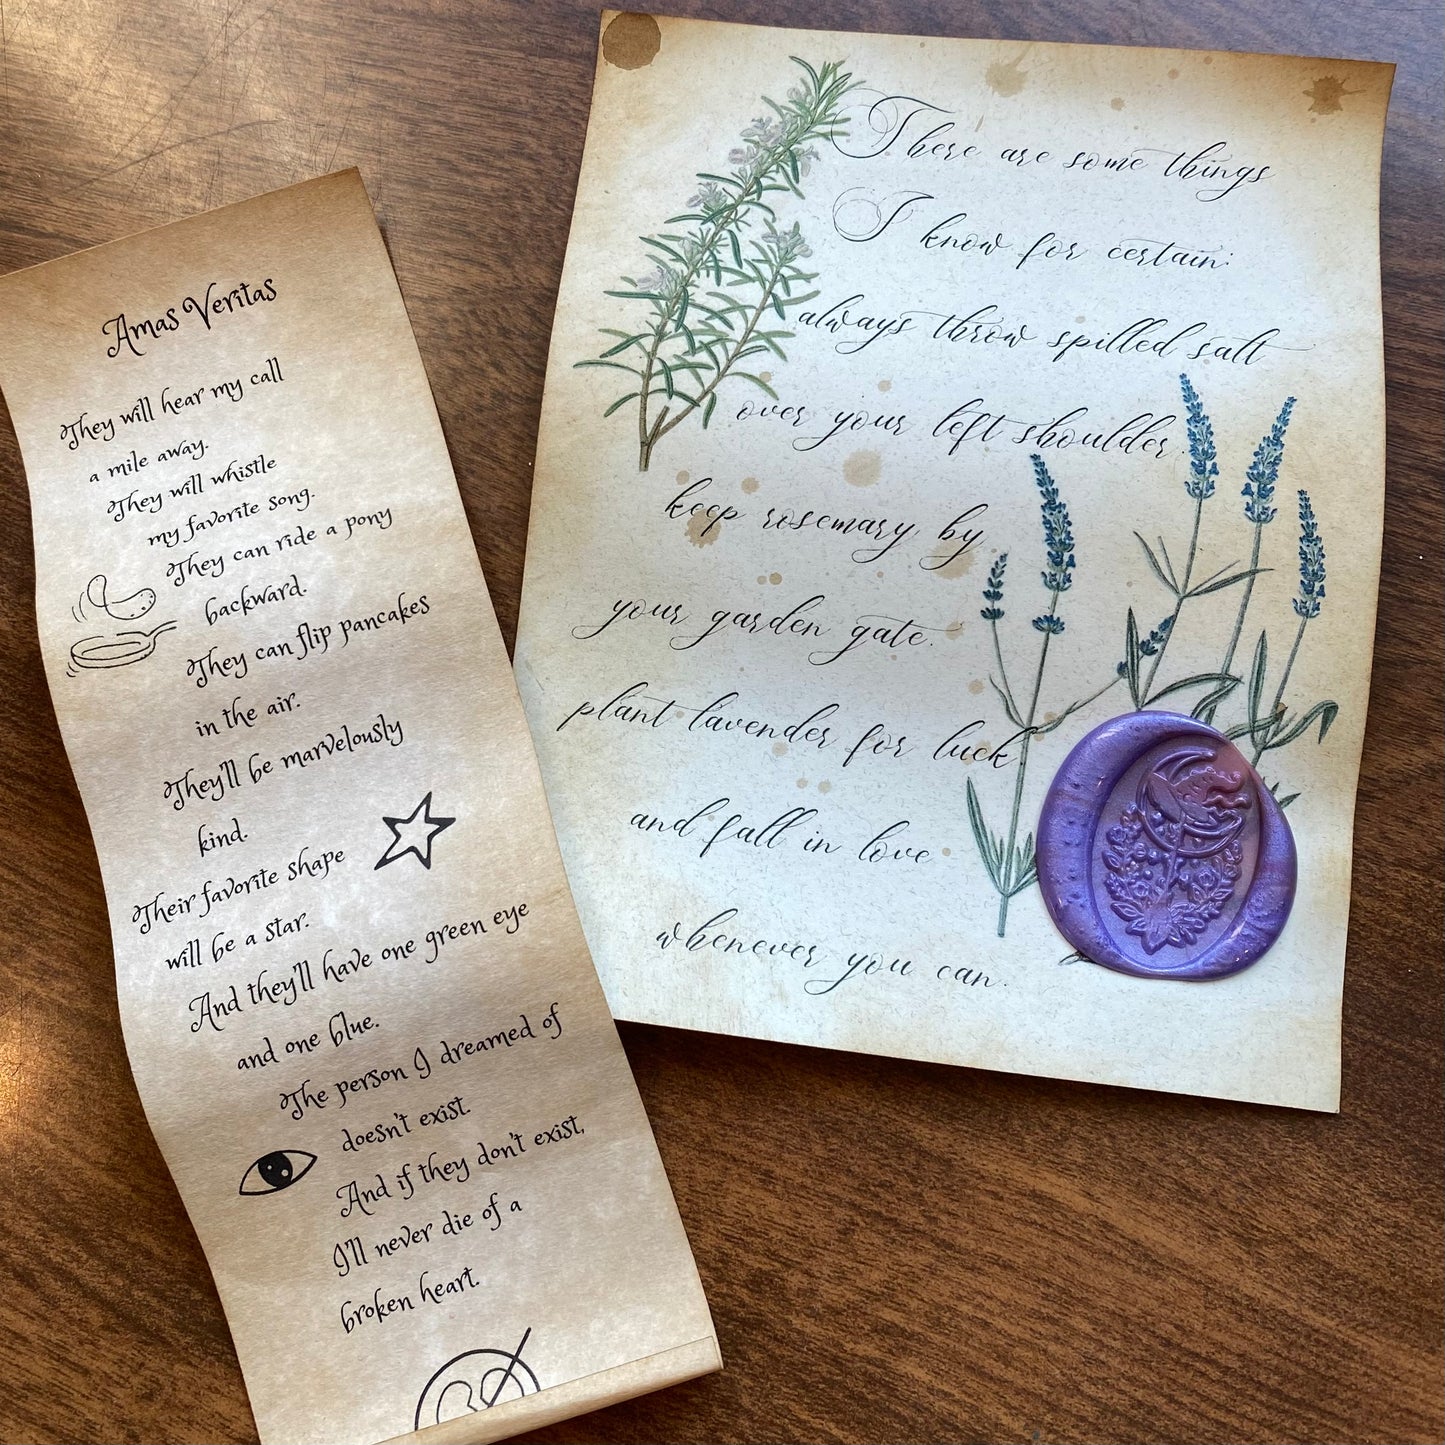 Amas Veritas
They will hear my call
a mile away.
They will whistle
my favorite song.
They can ride a pony
backward.
They can flip pancakes
in the air.
They'll be marvelously
kind.
Their favorite shape
will be a star.
And they'll have one green eye
and one blue.
The person I dreamed of
doesn't exist.
And if they don't exist,
I'll never die of a
broken heart.
There are some things
I know for certain:
always throw spilled salt
over your left shoulder.
keep rosemary by
your garden gate.
plant lavender for luck
and fall in love
whenever you can.